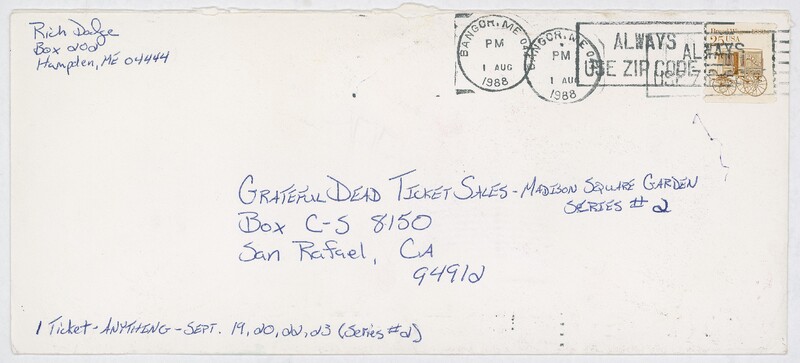 Rich Dodge
Box 202
Hampden, ME 04444
BANGOR, ME
PM
1 AUG
1988
BANGOR, ME
PM
1 AUG
1988
ALWAYS
USE ZIP CODE
ALWAYS
USE ZIP
GRATEFUL DEAD TICKET SALES - MADISON SQUARE GARDEN
SERIES #2
Box C-S 8150
San Rafael, CA
94912
1 Ticket - ANYTHING - SEPT. 19, 20, 22, 23 (Series #2)